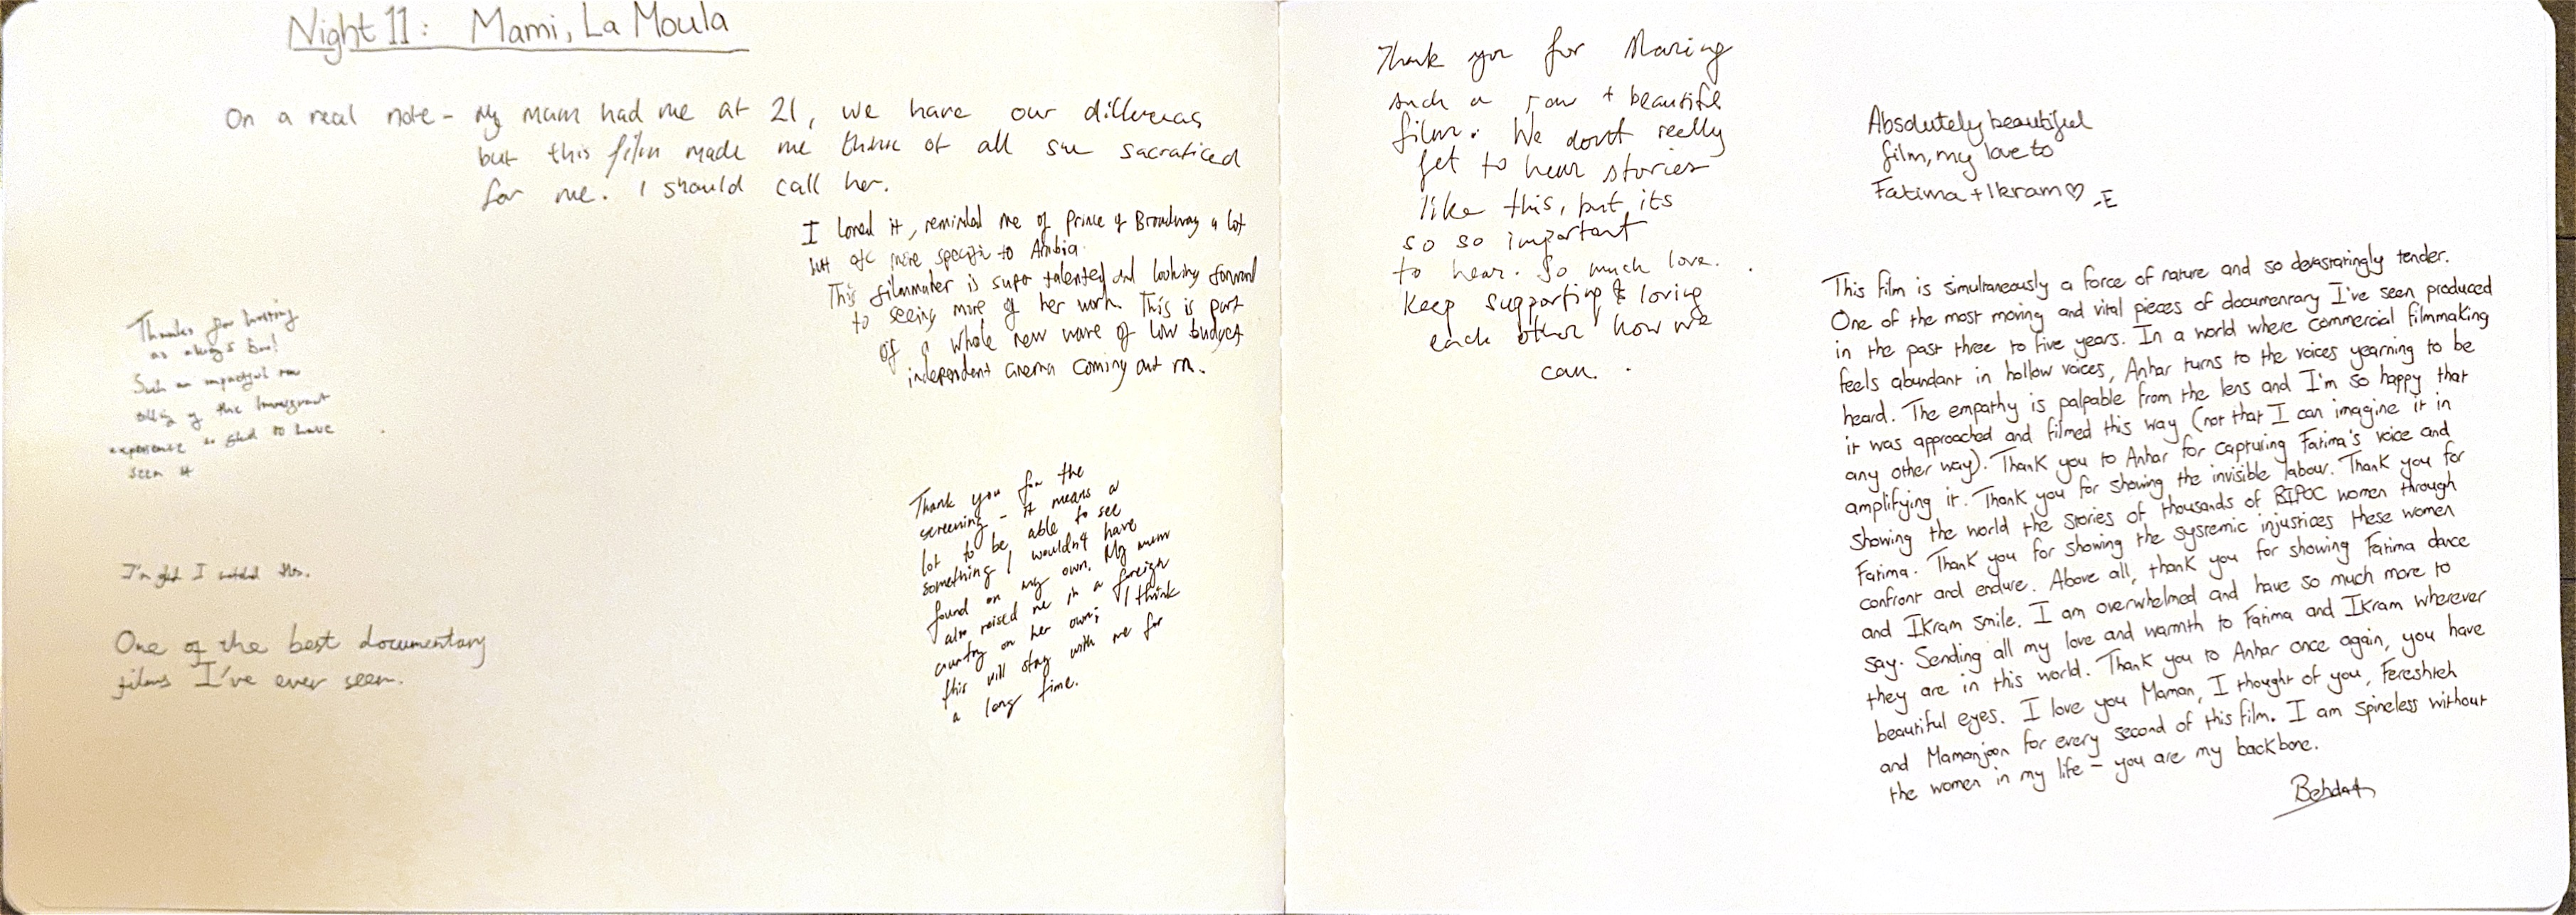 Night 11: Mami, La Moula
On a real note - My mam had me at 21, we have our differences
but this film made me think of all she sacraficed
for me. I should call her.
I loved it, reminded me of Prince of Broadway a lot
but ofc more specific to Arabia.
This filmmaker is super talented and looking forward
to seeing more of her work. This is part
of a whole new wave of low budget
independent cinema coming out rn.
Thanks for hosting
as always
Such an impactful raw
of the Immigrant
experience so glad to have
seen it
I'm glad I watched this.
One of the best documentary
films I've ever seen.
Thank you for the
screening - it means a
lot to be able to see
something I wouldn't have
found on my own. My mum
also raised me in a foreign
country on her own; I think
this will stay with me for
a long time.
Thank you for sharing
such a raw + beautiful
film. We don't really
get to hear stories
like this, but its
so so important
to hear. So much love.
Keep supporting & loving
each other how we
can.
Absolutely beautiful
film, my love to
Fatima + Ikram ♡
-E
This film is simultaneously a force of nature and so devastatingly tender.
One of the most moving and vital pieces of documentary I've seen produced
in the past three to five years. In a world where commercial filmmaking
feels abundant in hollow voices, Anhar turns to the voices yearning to be
heard. The empathy is palpable from the lens and I'm so happy that
it was approached and filmed this way (not that I can imagine it in
any other way). Thank you to Anhar for capturing Fatima's voice and
amplifying it. Thank you for showing the invisible labour. Thank you for
showing the world the stories of thousands of BIPOC women through
Fatima. Thank you for showing the systemic injustices these women
confront and endure. Above all, thank you for showing Fatima dance
and Ikram smile. I am overwhelmed and have so much more to
say. Sending all my love and warmth to Fatima and Ikram wherever
they are in this world. Thank you to Anhar once again, you have
beautiful eyes. I love you Maman, I thought of you, Fereshteh
and Mamanjoon for every second of this film. I am spineless without
the women in my life - you are my backbone.